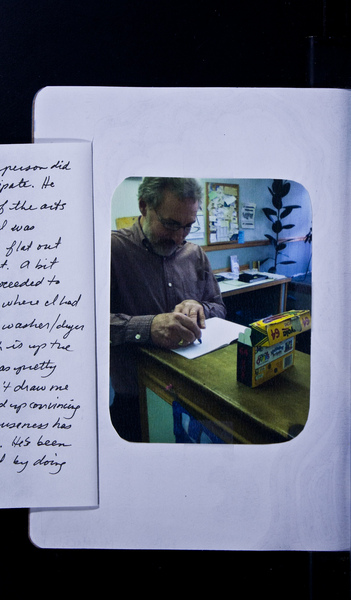 person did
pate. He
of the arts
I was
flat out
t. A bit
oceeded to
where I had
washer/dryer
h is up the
as pretty
't draw me
d up convincing
useness has
. He's been
d by doing